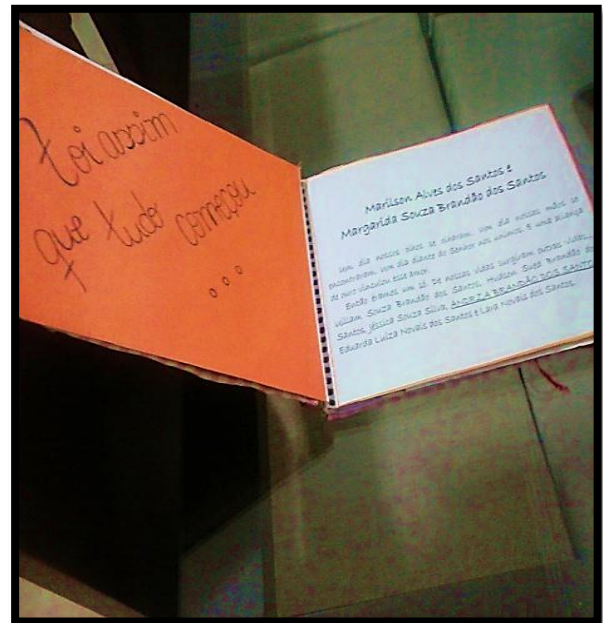 Foi assim
que tudo começou
...
Marilson Alves dos Santos e
Margarida Souza Brandão dos Santos
Um dia nossos olhos se olharam. Um dia nossas mãos se
encontraram. Um dia diante do Senhor nos unimos. E uma aliança
de ouro vinculou esse amor.
Então éramos um só. De nossas vidas surgiram outras vidas...
Souza Brandão dos Santos, Hudson Brandão
Santos, Jéssica Souza Silva, BRANDÃO DOS SANTO
Eduarda Luiza Novais dos Santos e Lara Novais dos Santos.